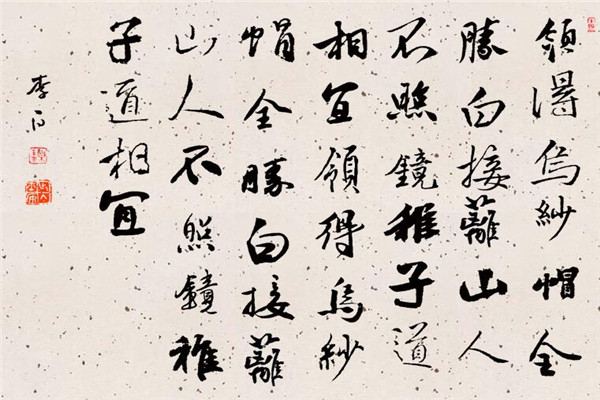 領得烏紗帽全
勝白接蘺山人
不照鏡稚子道
相宜領得烏紗
帽全勝白接蘺
山人不照鏡稚
子道相宜
李